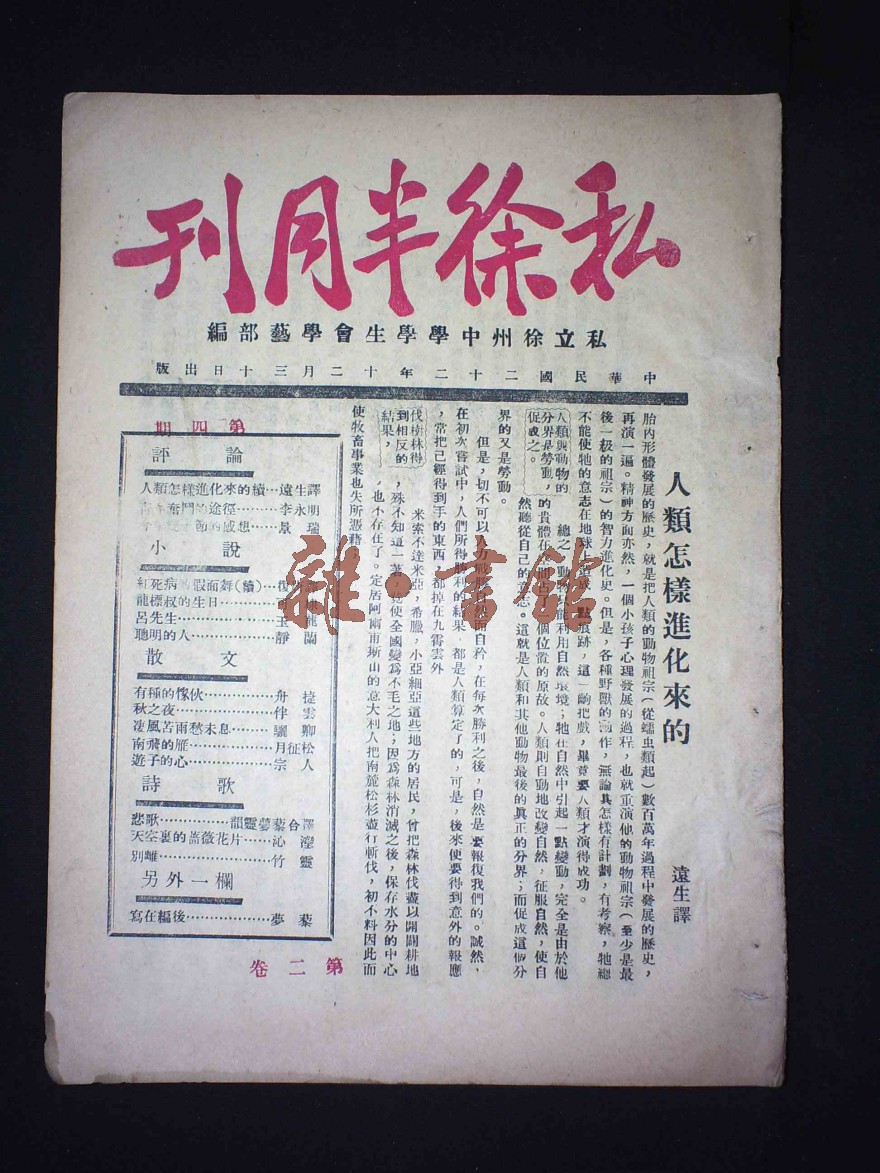 私徐半月刊
私立徐州中學學生會學藝部編
中華民國二十二年十二月三十日出版
人類怎樣進化來的
遠生譯
胎內形體發展的歷史，就是把人類的動物祖宗（從蠕虫類起）數百萬年過程中發展的歷史，
再演一遍。精神方面亦然，一個小孩子心理發展的過程，也就重演他的動物祖宗（至少是最
後一級的祖宗）的智力進化史。但是，各種野獸的動作，無論其怎樣有計劃，有考察，牠總
不能使牠的意志在地球上造成一點痕跡，這一齣把戲，畢竟要人類才演得成功。
人類與動物的
分界是勞動，
促成之。
總之，動物只能利用自然環境；牠在自然中引起一點變動，完全是由於他
的貴體在
個位置的原故。人類則自動地改變自然，征服自然，使自
然聽從自己的意志。這就是人類和其他動物最後的真正的分界；而促成這個分
界的又是勞動。
但是，切不可以人力戰勝自然而自矜，在每次勝利之後，自然是要報復我們的。誠然，
在初次嘗試中，人們所得勝利的結果，都是人類算定了的，可是，後來便要得到意外的報應
，常把已經得到手的東西，都掉在九霄雲外
伐樹林得
到相反的
結果，
米索不達米亞，希臘，小亞細亞這些地方的居民，曾把森林伐盡以開闢耕地
，殊不知這一著，竟使全國變爲不毛之地；因爲森林消滅之後，保存水分的中心
，也不存在了。定居阿爾甫斯山的意大利人把南麓松杉盡行斬伐，初不料因此而
使牧畜事業也失所憑藉；
第四期
評論
人類怎樣進化來的續…遠生譯
奮鬥的途徑…李永明
的感想…景瑞
小說
紅死病的假面舞（續）
龍標叔的生日
呂先生…玉龍
聰明的人…靜蘭
散文
有種的傢伙…舟㨗
秋之夜…伴雲
凄風苦雨愁未息…驪卿
南飛的雁…月征松
遊子的心…宗人
詩歌
悲歌…韻靈夢藜合譯
天空裏的薔薇花片…沁瀅
別離…竹靈
另外一欄
寫在編後…夢藜
第二卷
雜·書館